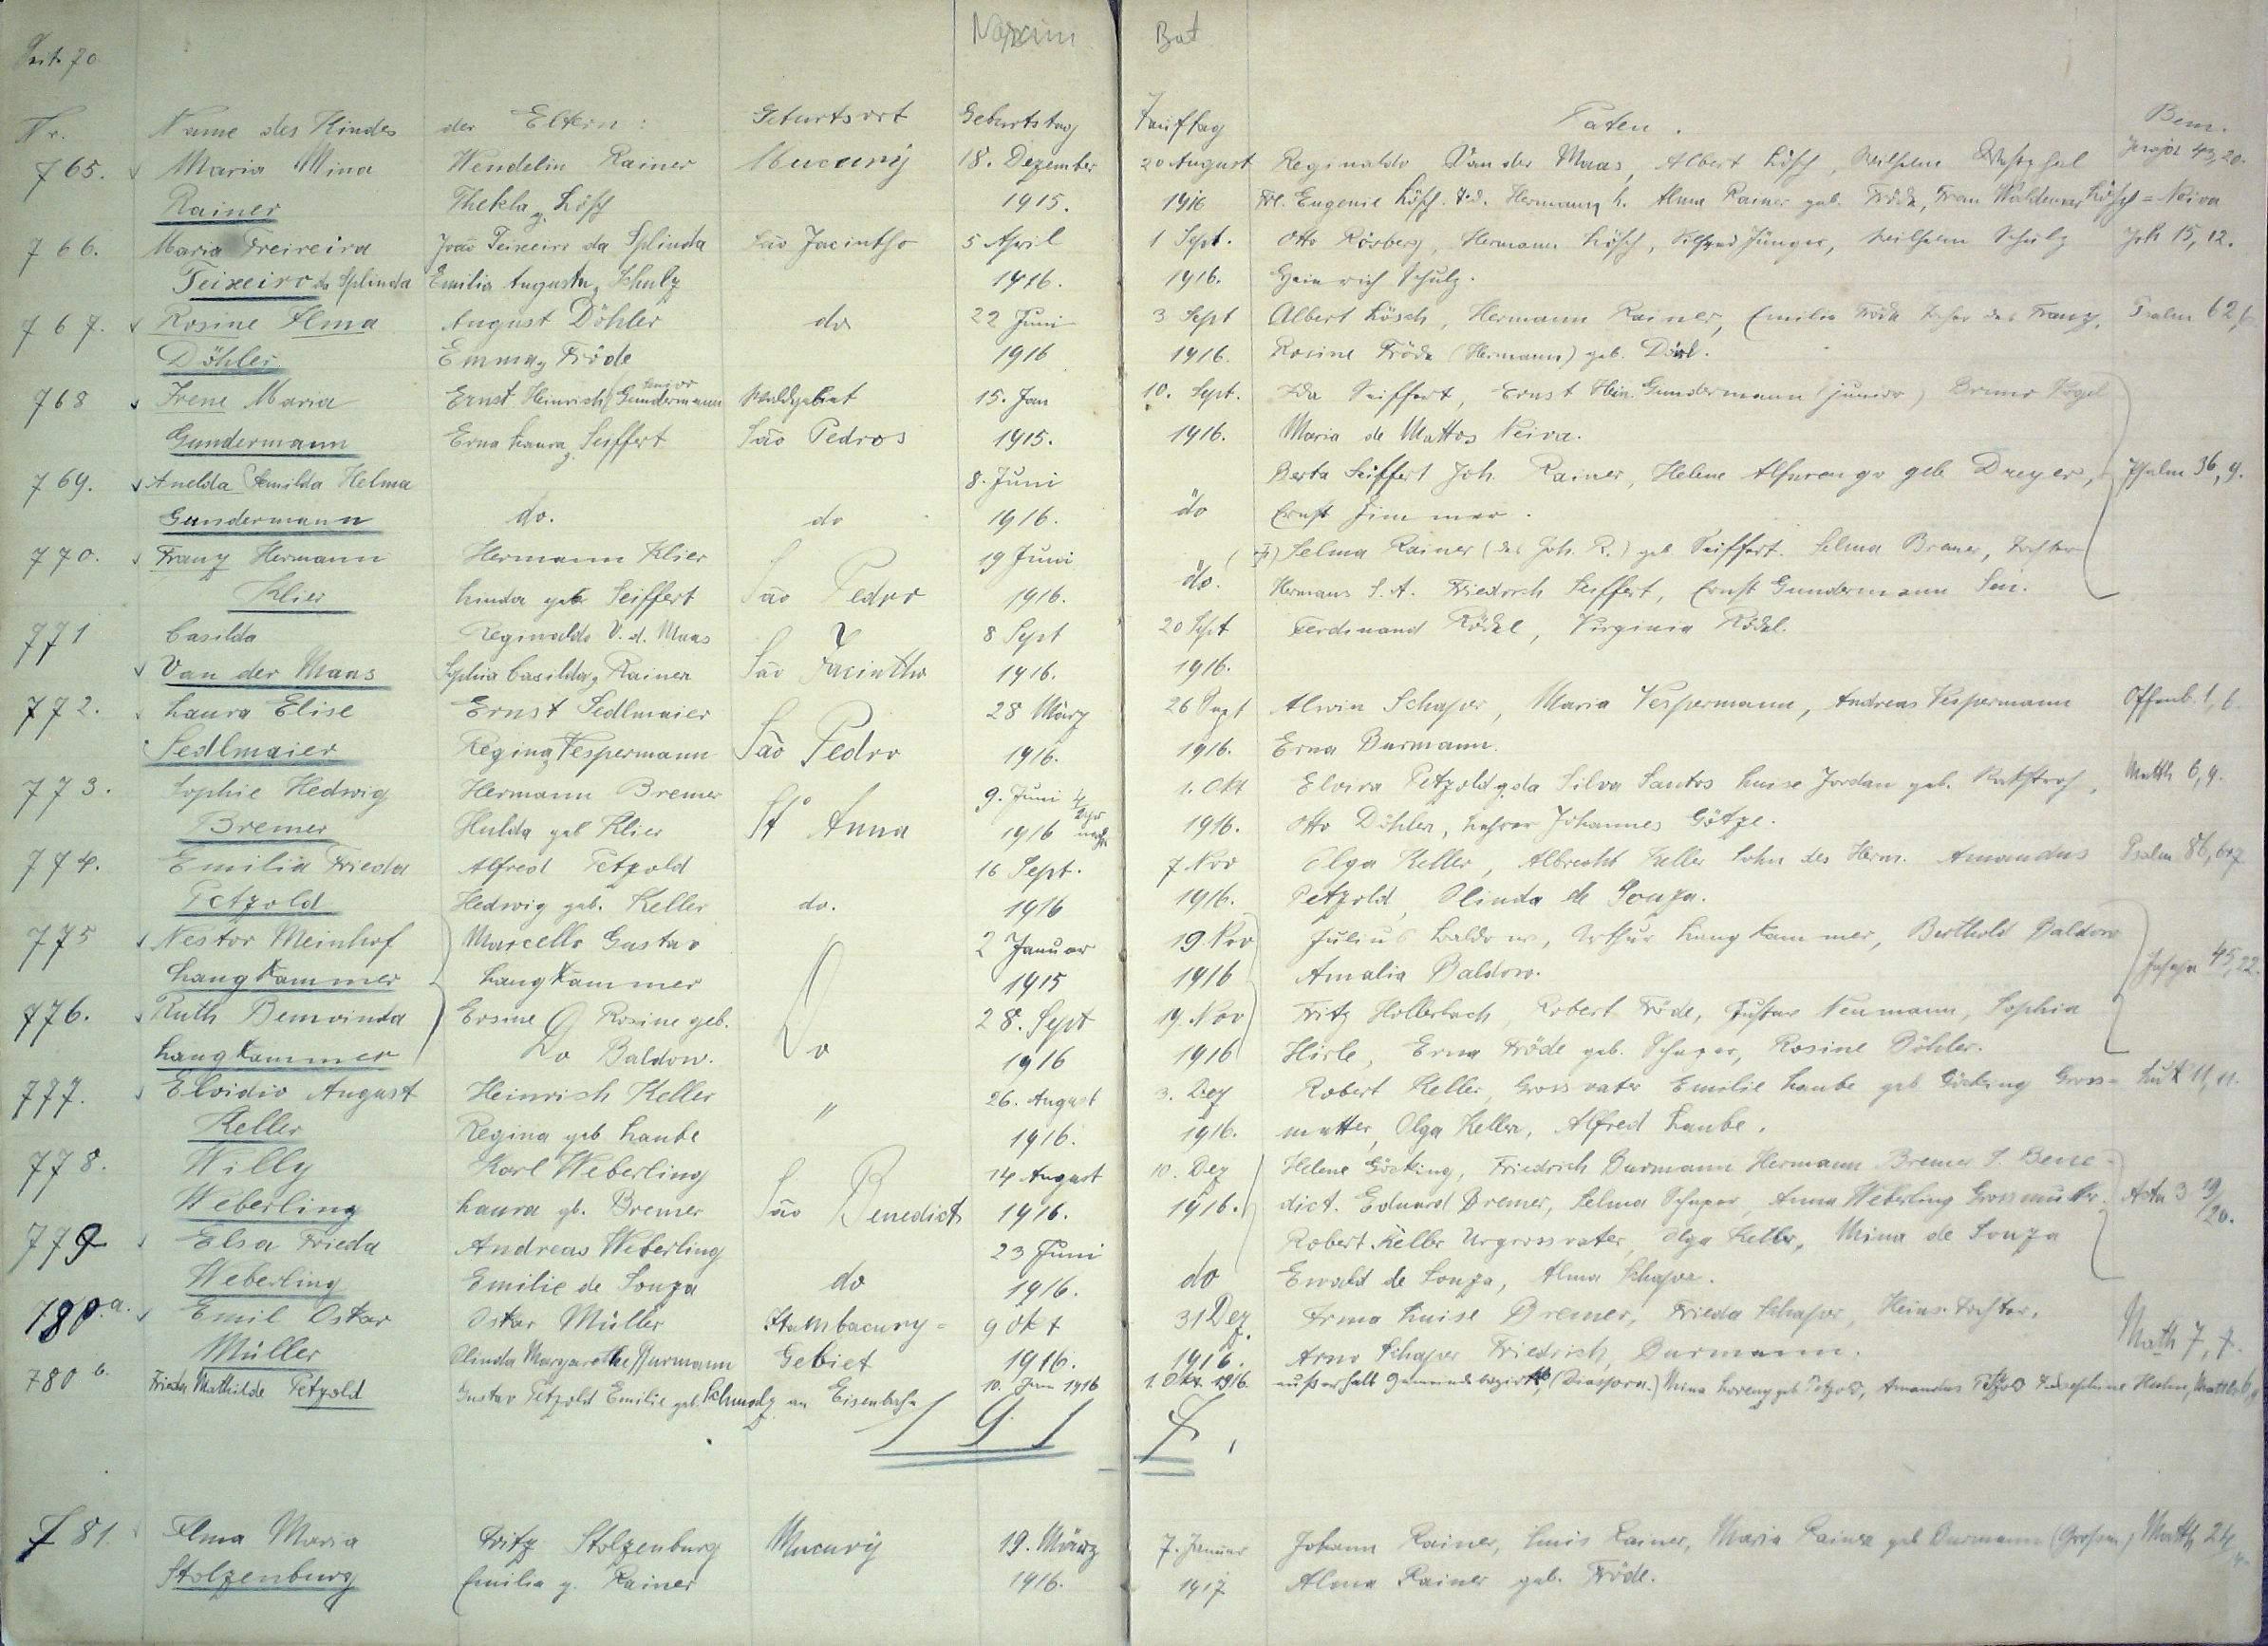 Seite 70 Nascim Bat
Nr. Name des Kindes der Eltern: Geburtsort Geburtstag Tauftag Paten. Bem.
765. Maria Mina Wendelin Rainer Mucury 18. Dezember 20 August Reginaldo Van der Maas, Albert Lösch, Wilhelm 43,20.
Rainer Thekla g. Lösch 1915. 1916 Frl. Eugenie Lösch. Hermann Alma Rainer geb. Fröde, Frau Waldemar Lösch = Neiva
766. Maria Freireira João Teixeira da Splinda São Jacintho 5 April 1 Sept. Otto Rösberg, Hermann Lösch, Jünger, Wilhelm Schulz Joh 15,12.
Teixeira da Splinda Emilia Augusta g. Schulz 1916. 1916. Heinrich Schulz.
767. Rosine Alma August Döhler do 22 Juni 3 Sept Albert Lösch, Hermann Rainer, Emilia Fröde Tochter des Franz, Psalm 62,
Döhler Emma g. Fröde 1916 1916. Rosine Fröde (Hermann) geb.
768 Irene Maria Ernst Heinrich Gundermann senior Waldgebiet 15. Jan 10. Sept. Ida Seiffert, Ernst Hein. Gundermann (junior) Bruno Vogel
Gundermann Erna Laura g. Seiffert São Pedros 1915. 1916. Maria de Mattos Neiva.
769. Anelda Semilda Helma 8. Juni Berta Seiffert Joh. Rainer, Helene geb Dreyer, Psalm 36,9.
Gundermann do. do 1916. do Ernst Zimmer.
770. Franz Hermann Hermann Klier São Pedro 19 Juni Selma Rainer (des Joh. R.) geb. Seiffert. Selma Bremer, Tochter
Klier Linda geb Seiffert 1916. do. Hermann S. A. Friedrich Seiffert, Ernst Gundermann Sen.
771 Casilda Reginaldo V. d. Maas São Jacintho 8 Sept 20 Sept Ferdinand Rödel, Virginia Rödel.
Van der Maas Sophia Casilda g. Rainer 1916. 1916.
772. Laura Elise Ernst Sedlmaier São Pedro 28 März 26 Sept Alwin Schaper, Maria Vespermann, Andreas Vespermann Offenb. 1,6
Sedlmaier Regina g. Vespermann 1916. 1916. Erna Burmann.
773. Sophie Hedwig Hermann Bremer Sta Anna 9. Juni 1. Okt Elvira Petzold g. da Silva Santos Luise Jordan geb. Matth 6,9.
Bremer Hulda geb Klier 1916 1916. Otto Döhler, Lehrer Johannes Götze.
774. Emilia Frieda Alfred Petzold 16 Sept. 7 Nov Olga Keller, Albrecht Keller Sohn des Herm. Amandus Psalm 86,
Petzold Hedwig geb. Keller do. 1916 1916. Petzold, Olinda de Souza.
775 Nestor Meinhof Marcello Gustav 2 Januar 19 Nov Julius Baldow, Arthur Langkammer, Berthold Baldow Jesaja 45,22
Langkammer Langkammer Do 1915 1916 Amalia Baldow.
776. Ruth Benvinda Rosine geb. 28. Sept 19. Nov Fritz Hollerbach, Robert Fröde, Gustav Neumann, Sophia
Langkammer Do Baldow. 1916 1916 Hirle, Erna Fröde geb. Schaper, Rosine Döhler.
777. Elvidio August Heinrich Keller " 26. August 3. Dez Robert Keller, Grossvater Emilie Laube geb Göcking Gross= Luk 11,11.
Keller Regina geb Laube 1916. 1916. mutter, Olga Keller, Alfred Laube.
778. Willy Karl Weberling São Benedict 14 August 10. Dez Helene Göcking, Friedrich Burmann Hermann Bremer S. Bene-
Weberling Laura gb. Bremer 1916. 1916. dict. Eduard Bremer, Selma Schaper, Anna Weberling Grossmutter. Acta 3 19/20.
779 Elsa Frieda Andreas Weberling 23 Juni Robert Keller Urgrossvater, Olga Keller, Mina de Souza
Weberling Emilie de Souza do 1916. do Ewald de Souza, Alma Schaper.
780.a. Emil Oskar Oskar Müller Itambacury= 9 Okt 31 Dez. Irma Luise Bremer, Frieda Schaper, Heinr. Tochter.
Müller Olinda Margarethe Burmann Gebiet 1916. 1916. Arno Schaper Friedrich, Burmann. Math 7,7.
780 b. Frieda Mathilde Petzold Gustav Petzold Emilie geb. Schmalz an Eisenbahn 10. Juni 1916 1. Okt. 1916. außerhalb Gemeindebezirk, (Diaspora.) Mina Lorenz geb Petzold, Amandus Petzold
1917.
781. Alma Maria Fritz Stolzenburg Mucury 19. März 7. Januar Johann Rainer, Luis Rainer, Maria Rainer geb Burmann Matth 24
Stolzenburg Emilia g. Rainer 1916. 1917 Alma Rainer geb. Fröde.